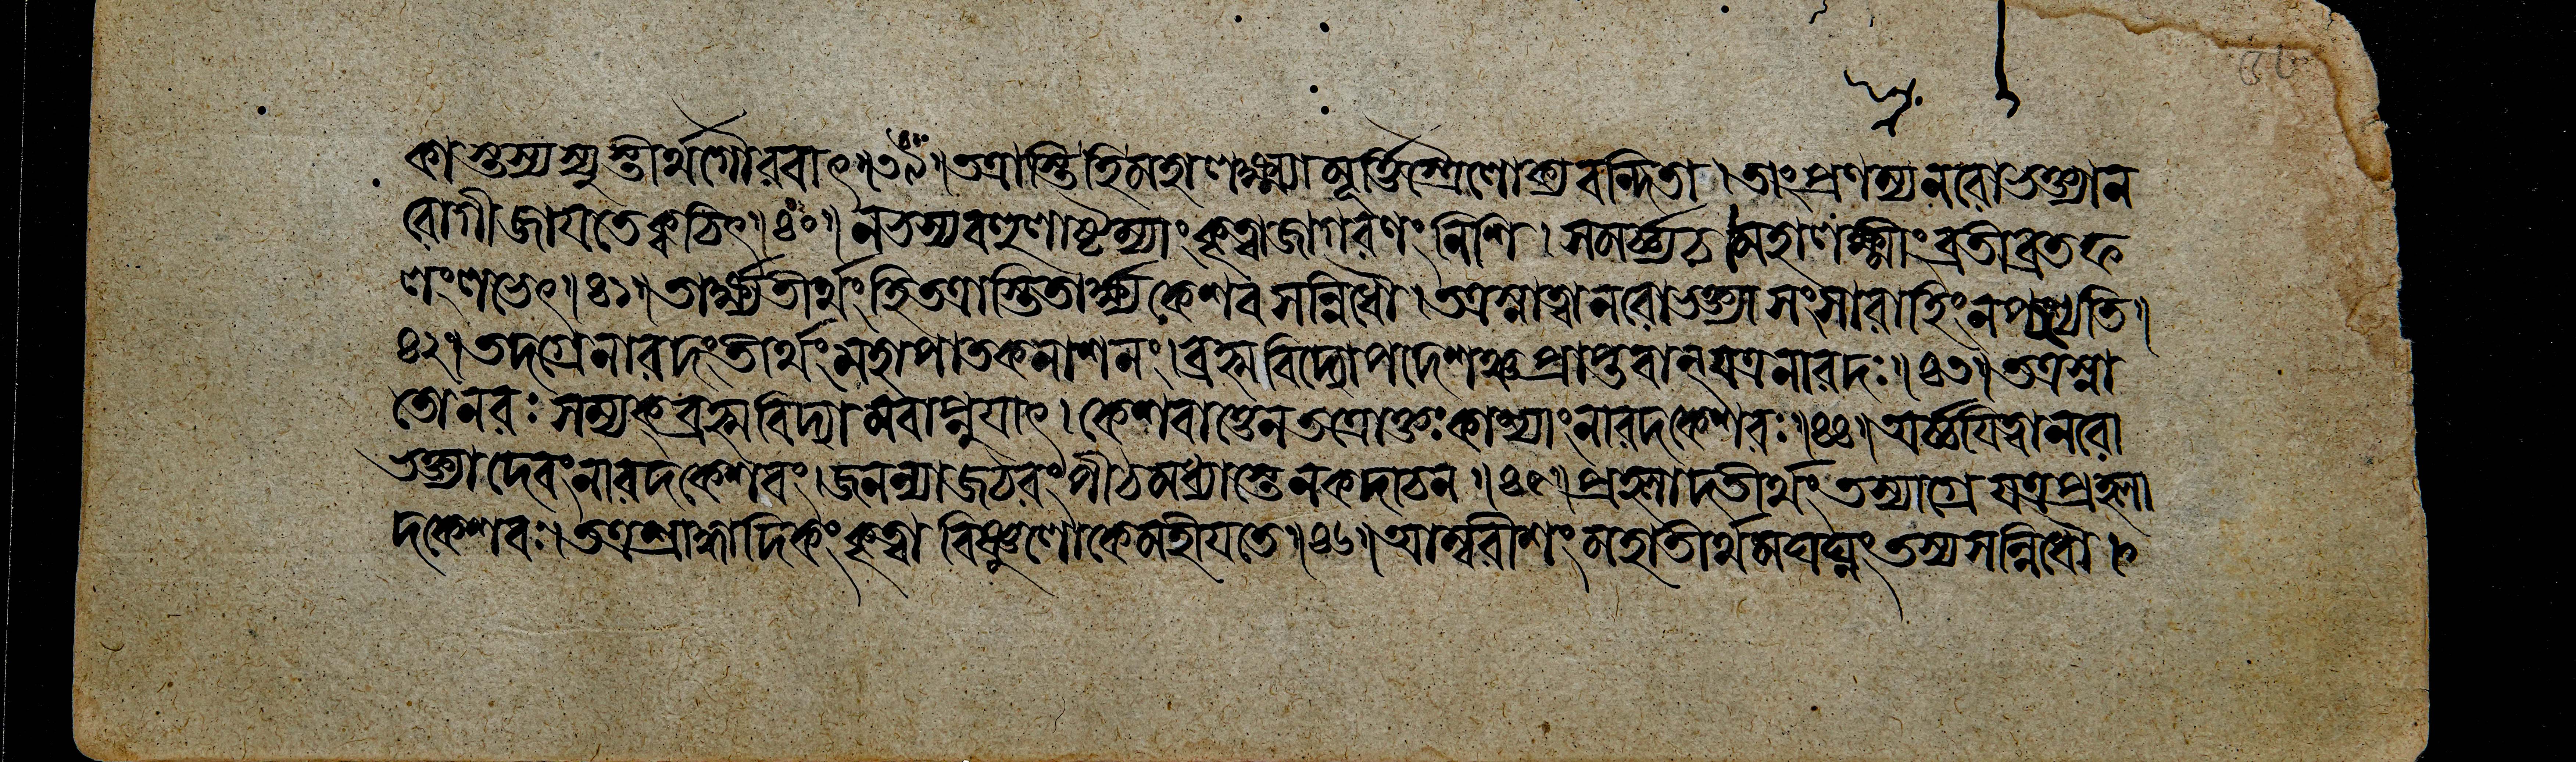 কাস্তস্যস্যুস্তীর্থগৌরবাৎ॥৩৯॥তত্রাস্তিহিমহালক্ষ্ম্যামূর্ত্তিস্ত্রৈলোক্যবন্দিতা।তাংপ্রণম্যনরোভক্ত্যান
রোগীজায়তেক্বচিৎ॥৪০॥নভস্যবহুলাষ্টম্যাংকৃত্বাজাগরণংনিশি।সমর্চ্চ্যচমহালক্ষ্মীংব্রতীব্রতফ
লংলভেৎ॥৪১॥তার্ক্ষ্যতীর্থংহিতত্রাস্তিতার্ক্ষ্যকেশবসন্নিধৌ।তত্রস্নাত্বানরোভক্ত্যাসংসারাহিংনপশ্যতি॥
৪২॥তদগ্রেনারদংতীর্থংমহাপাতকনাশনং।ব্রহ্মবিদ্যোপদেশঞ্চপ্রাপ্তবান্যত্রনারদঃ॥৪৩॥তত্রস্না
তোনরঃসম্যক্ব্রহ্মবিদ্যামবাপ্নুয়াৎ।কেশবাত্তেনতত্রোক্তঃকাশ্যাংনারদকেশবঃ॥৪৪॥অর্চ্চয়িত্বানরো
ভক্ত্যাদেবংনারদকেশবং।জনন্যাজঠরংপীঠমধ্যাস্তেনকদাচন॥৪৫॥প্রহ্লাদতীর্থংতস্যাগ্রেযত্রপ্রহ্লা
দকেশবঃ।তত্রশ্রাদ্ধাদিকংকৃত্বাবিষ্ণুলোকেমহীয়তে॥৪৬॥আম্বরীশংমহাতীর্থমঘঘ্নংতস্যসন্নিধৌ।